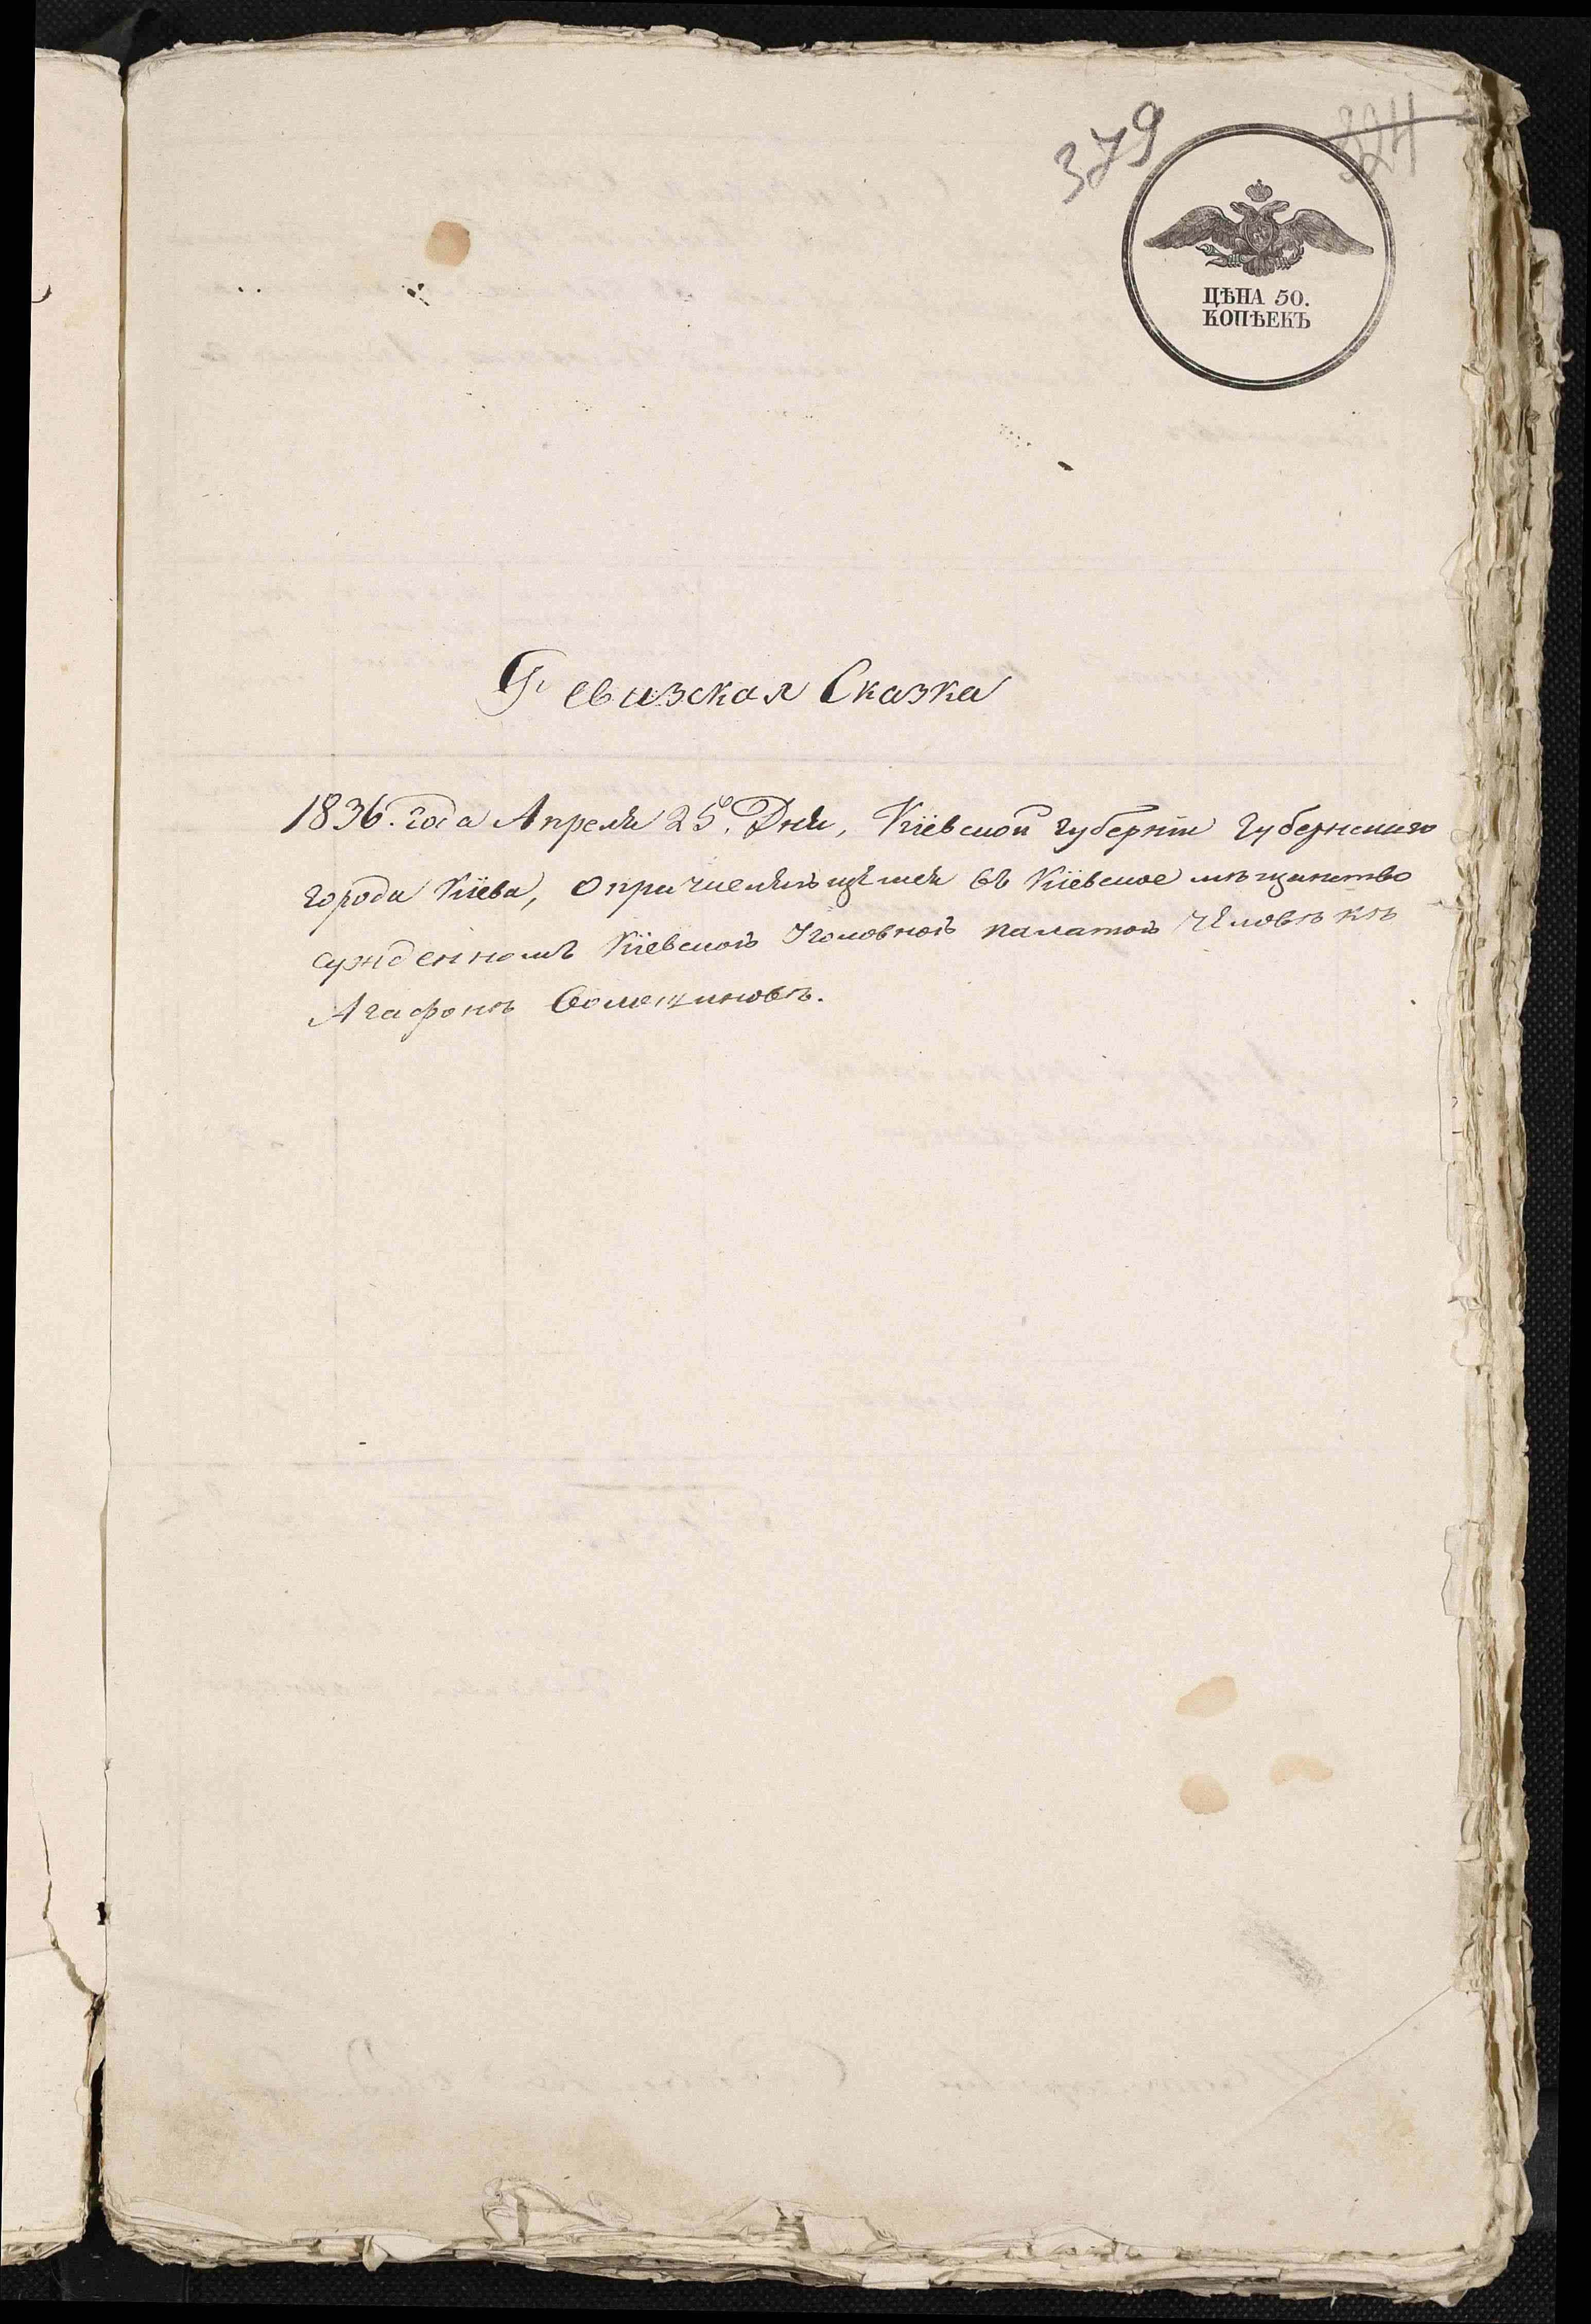 379
324
ЦѢНА 50.
КОПѢЕКЪ
Ревизская Сказка
1836. года Апреля 25го Дня, Кіевской губерніи губернскаго
города Кіева, о причислившемся въ Кіевское мѣщанство
сужденномъ Кіевской Уголовной палатой человѣкѣ
Агафонѣ